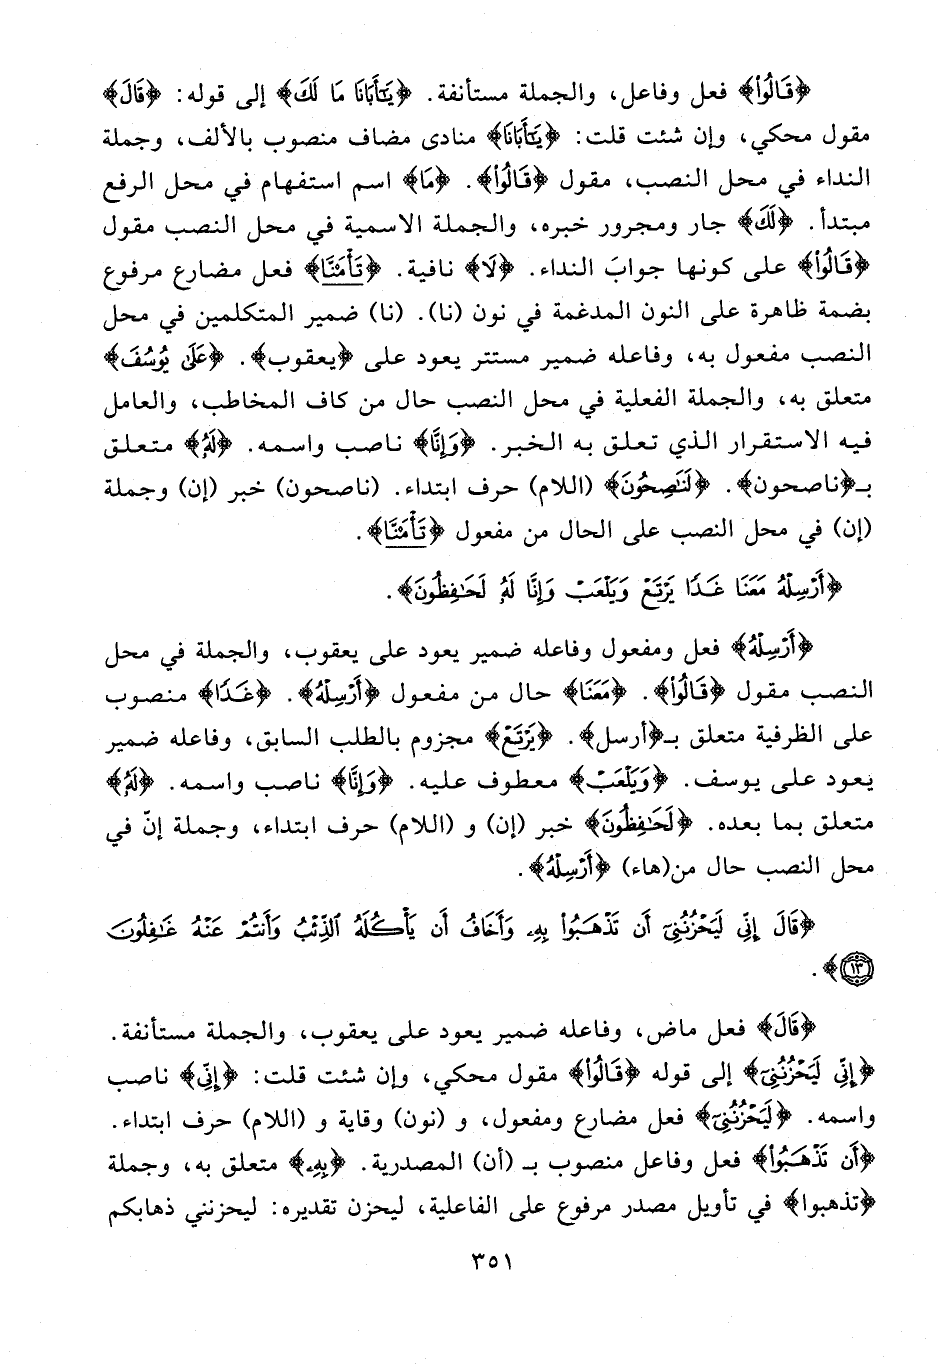 ﴿قَالُوا۟﴾ فعل وفاعل، والجملة مستأنفة. ﴿يَـٰٓأَبَانَا مَا لَكَ﴾ إلى قوله: ﴿قَالَ﴾
مقول محكي، وإن شئت قلت: ﴿يَـٰٓأَبَانَا﴾ منادى مضاف منصوب بالألف، وجملة
النداء في محل النصب، مقول ﴿قَالُوا۟﴾. ﴿مَا﴾ اسم استفهام في محل الرفع
مبتدأ. ﴿لَكَ﴾ جار ومجرور خبره، والجملة الاسمية في محل النصب مقول
﴿قَالُوا۟﴾ على كونها جوابَ النداء. ﴿لَا﴾ نافية. ﴿تَأْمَنَّا﴾ فعل مضارع مرفوع
بضمة ظاهرة على النون المدغمة في نون (نا). (نا) ضمير المتكلمين في محل
النصب مفعول به، وفاعله ضمير مستتر يعود على ﴿يعقوب﴾. ﴿عَلَىٰ يُوسُفَ﴾
متعلق به، والجملة الفعلية في محل النصب حال من كاف المخاطب، والعامل
فيه الاستقرار الذي تعلق به الخبر. ﴿وَإِنَّا﴾ ناصب واسمه. ﴿لَهُۥ﴾ متعلق
بـ﴿ناصحون﴾. ﴿لَنَـٰصِحُونَ﴾ (اللام) حرف ابتداء. (ناصحون) خبر (إن) وجملة
(إن) في محل النصب على الحال من مفعول ﴿تَأْمَنَّا﴾.
﴿أَرْسِلْهُ مَعَنَا غَدًا يَرْتَعْ وَيَلْعَبْ وَإِنَّا لَهُۥ لَحَـٰفِظُونَ﴾.
﴿أَرْسِلْهُ﴾ فعل ومفعول وفاعله ضمير يعود على يعقوب، والجملة في محل
النصب مقول ﴿قَالُوا۟﴾. ﴿مَعَنَا﴾ حال من مفعول ﴿أَرْسِلْهُ﴾. ﴿غَدًا﴾ منصوب
على الظرفية متعلق بـ﴿أرسل﴾. ﴿يَرْتَعْ﴾ مجزوم بالطلب السابق، وفاعله ضمير
يعود على يوسف. ﴿وَيَلْعَبْ﴾ معطوف عليه. ﴿وَإِنَّا﴾ ناصب واسمه. ﴿لَهُۥ﴾
متعلق بما بعده. ﴿لَحَـٰفِظُونَ﴾ خبر (إن) و (اللام) حرف ابتداء، وجملة إنّ في
محل النصب حال من(هاء) ﴿أَرْسِلْهُ﴾.
﴿قَالَ إِنِّى لَيَحْزُنُنِىٓ أَن تَذْهَبُوا۟ بِهِۦ وَأَخَافُ أَن يَأْكُلَهُ ٱلذِّئْبُ وَأَنتُمْ عَنْهُ غَـٰفِلُونَ
١٣﴾.
﴿قَالَ﴾ فعل ماض، وفاعله ضمير يعود على يعقوب، والجملة مستأنفة.
﴿إِنِّى لَيَحْزُنُنِىٓ﴾ إلى قوله ﴿قَالُوا۟﴾ مقول محكي، وإن شئت قلت: ﴿إِنِّى﴾ ناصب
واسمه. ﴿لَيَحْزُنُنِىٓ﴾ فعل مضارع ومفعول، و (نون) وقاية و (اللام) حرف ابتداء.
﴿أَن تَذْهَبُوا۟﴾ فعل وفاعل منصوب بـ (أن) المصدرية. ﴿بِهِۦ﴾ متعلق به، وجملة
﴿تذهبوا﴾ في تأويل مصدر مرفوع على الفاعلية، ليحزن تقديره: ليحزنني ذهابكم
٣٥١